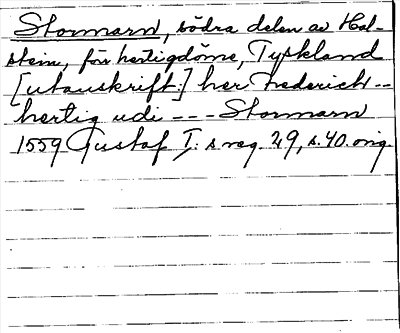 Stormarn, södra delen av Hol-
stein, förr hertigdöme, Tyskland
[utanskrift:] her Frederich --
hertig udi --- Stormarn
1559 Gustaf I:s reg. 29, s. 40. orig.